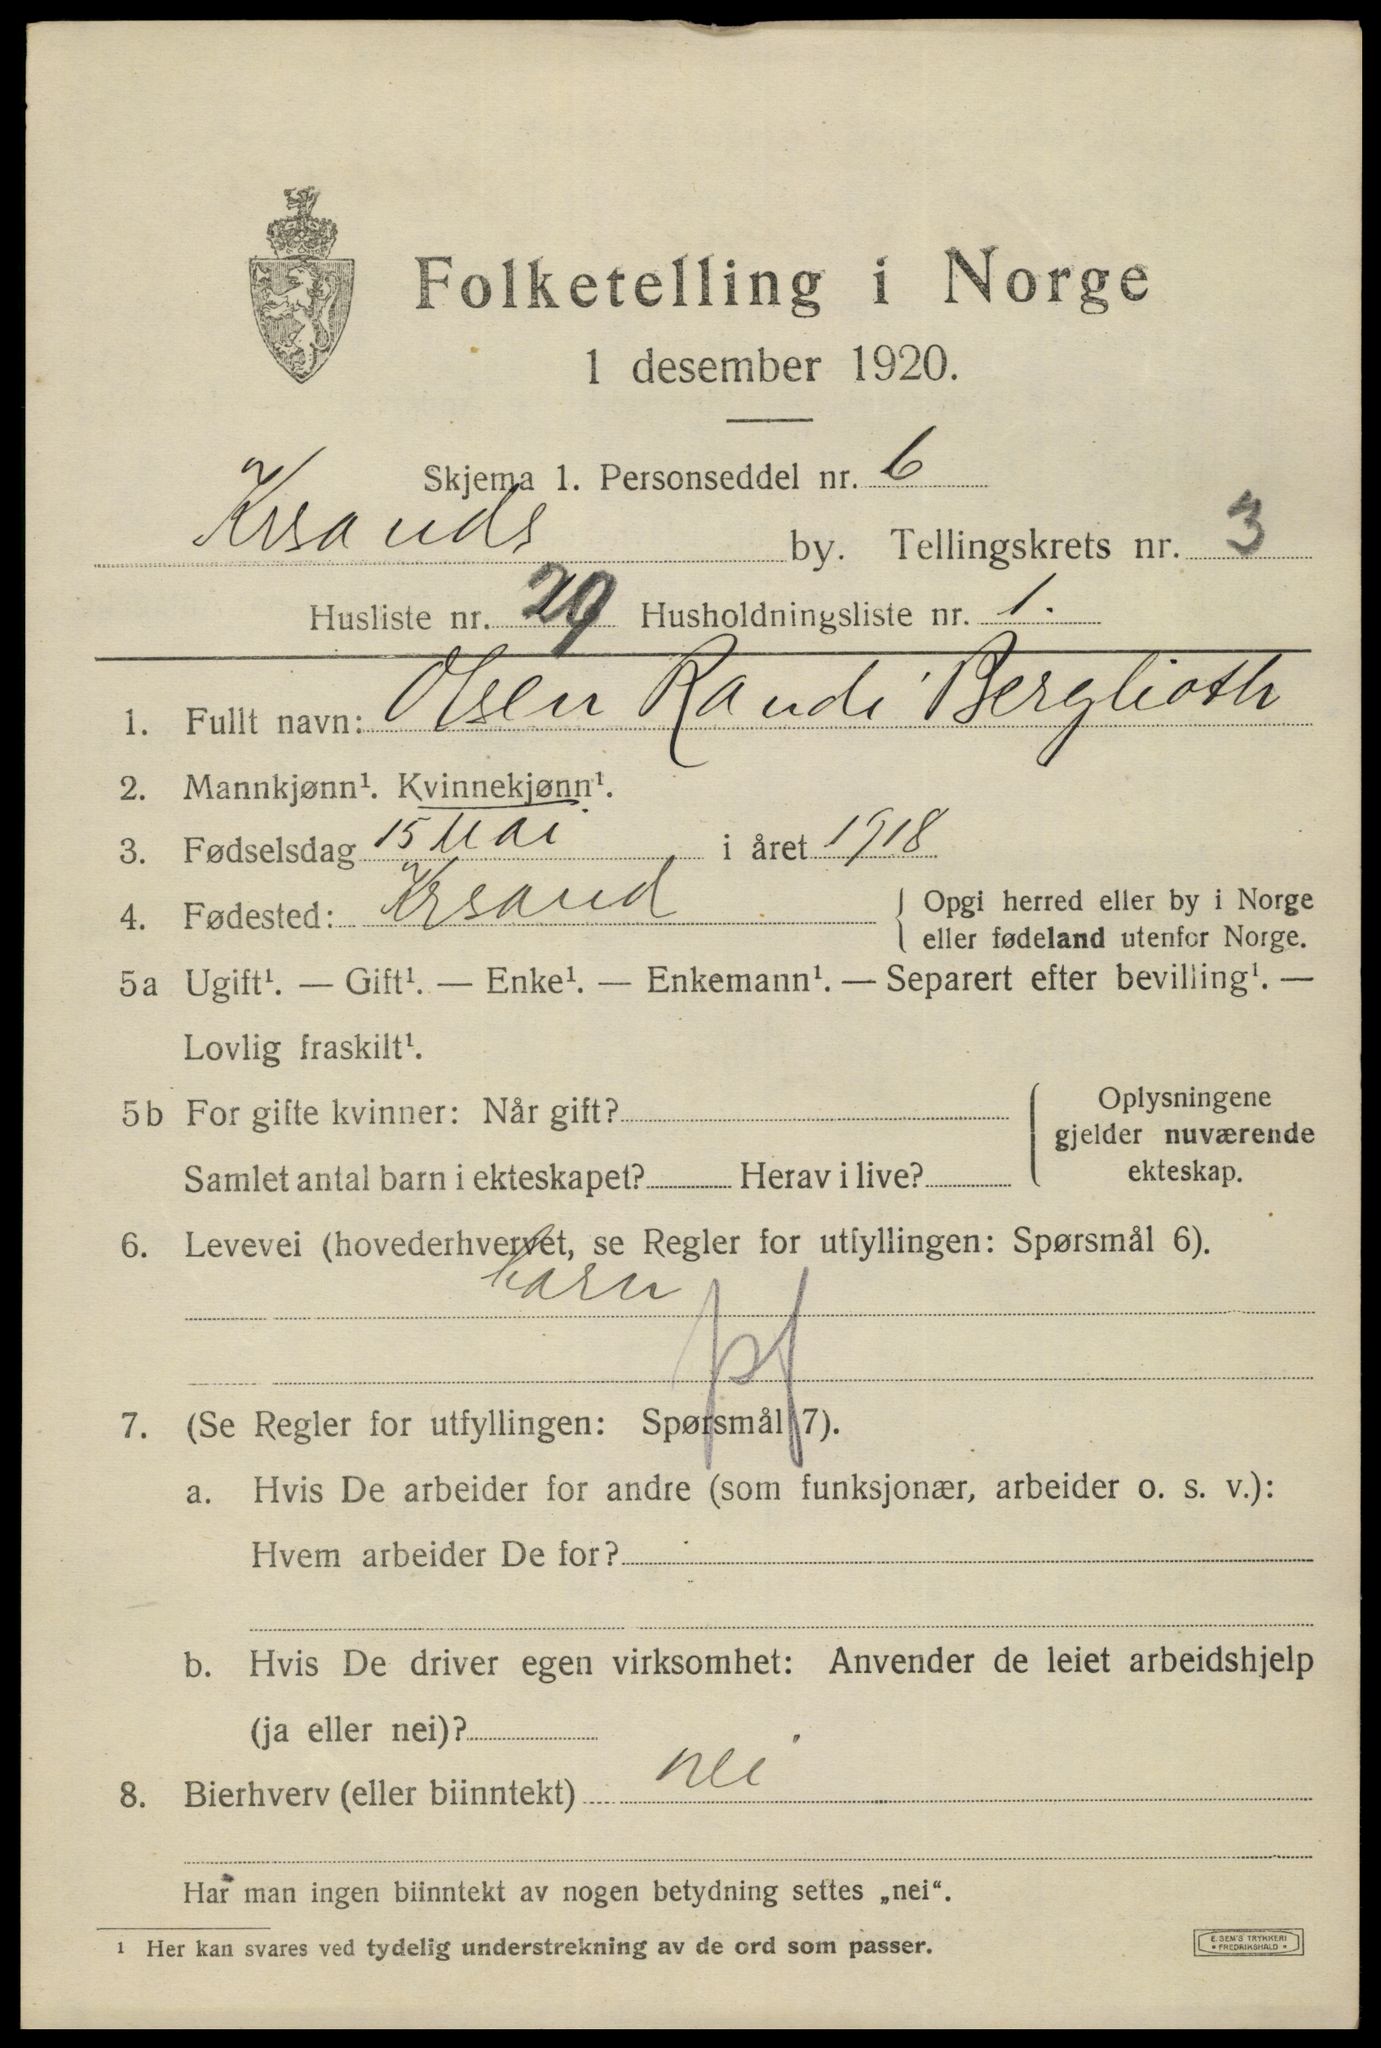 Folketelling i Norge
1 desember 1920.
Skjema 1. Personseddel nr. 6
Krsands by. Tellingskrets nr. 3
Husliste nr. 29 Husholdningsliste nr. 1.
1. Fullt navn: Olsen Randi Berglioth
2. Mannkjønn¹. Kvinnekjønn¹.
3. Fødselsdag 15 Mai i året 1918
4. Fødested: Krsand { Opgi herred eller by i Norge
eller fødeland utenfor Norge.
5a Ugift¹. — Gift¹. — Enke¹. — Enkemann¹. — Separert efter bevilling¹. —
Lovlig fraskilt¹.
5b For gifte kvinner: Når gift? { Oplysningene
gjelder nuværende
Samlet antal barn i ekteskapet? Herav i live? ekteskap.
6. Levevei (hovederhvervet, se Regler for utfyllingen: Spørsmål 6).
barn
pf
7. (Se Regler for utfyllingen: Spørsmål 7).
a. Hvis De arbeider for andre (som funksjonær, arbeider o. s. v.):
Hvem arbeider De for?
b. Hvis De driver egen virksomhet: Anvender de leiet arbeidshjelp
(ja eller nei)?
8. Bierhverv (eller biinntekt) nei
Har man ingen biinntekt av nogen betydning settes „nei“.
¹ Her kan svares ved tydelig understrekning av de ord som passer.
E. SEM'S TRYKKERI
• FREDRIKSHALD •